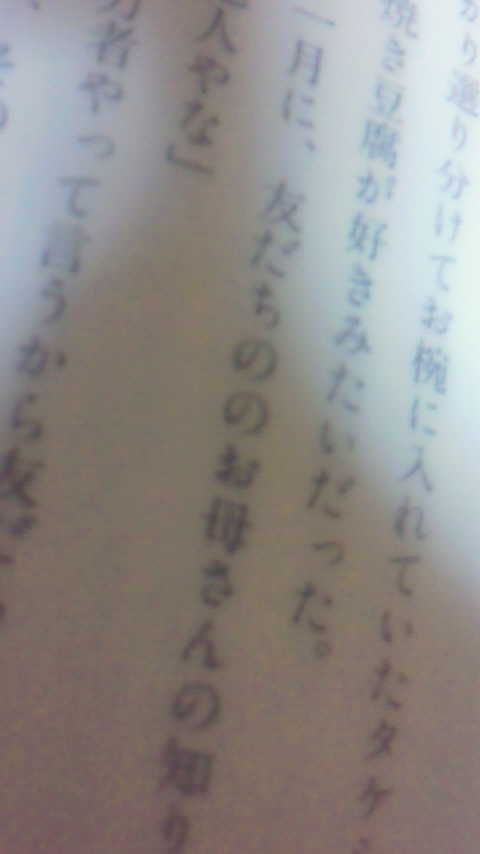 かり選り分けてお椀に入れていたタケ
焼き豆腐が好きみたいだった。
一月に、友だちののお母さんの知り
人やな」
者やって言うから友だ